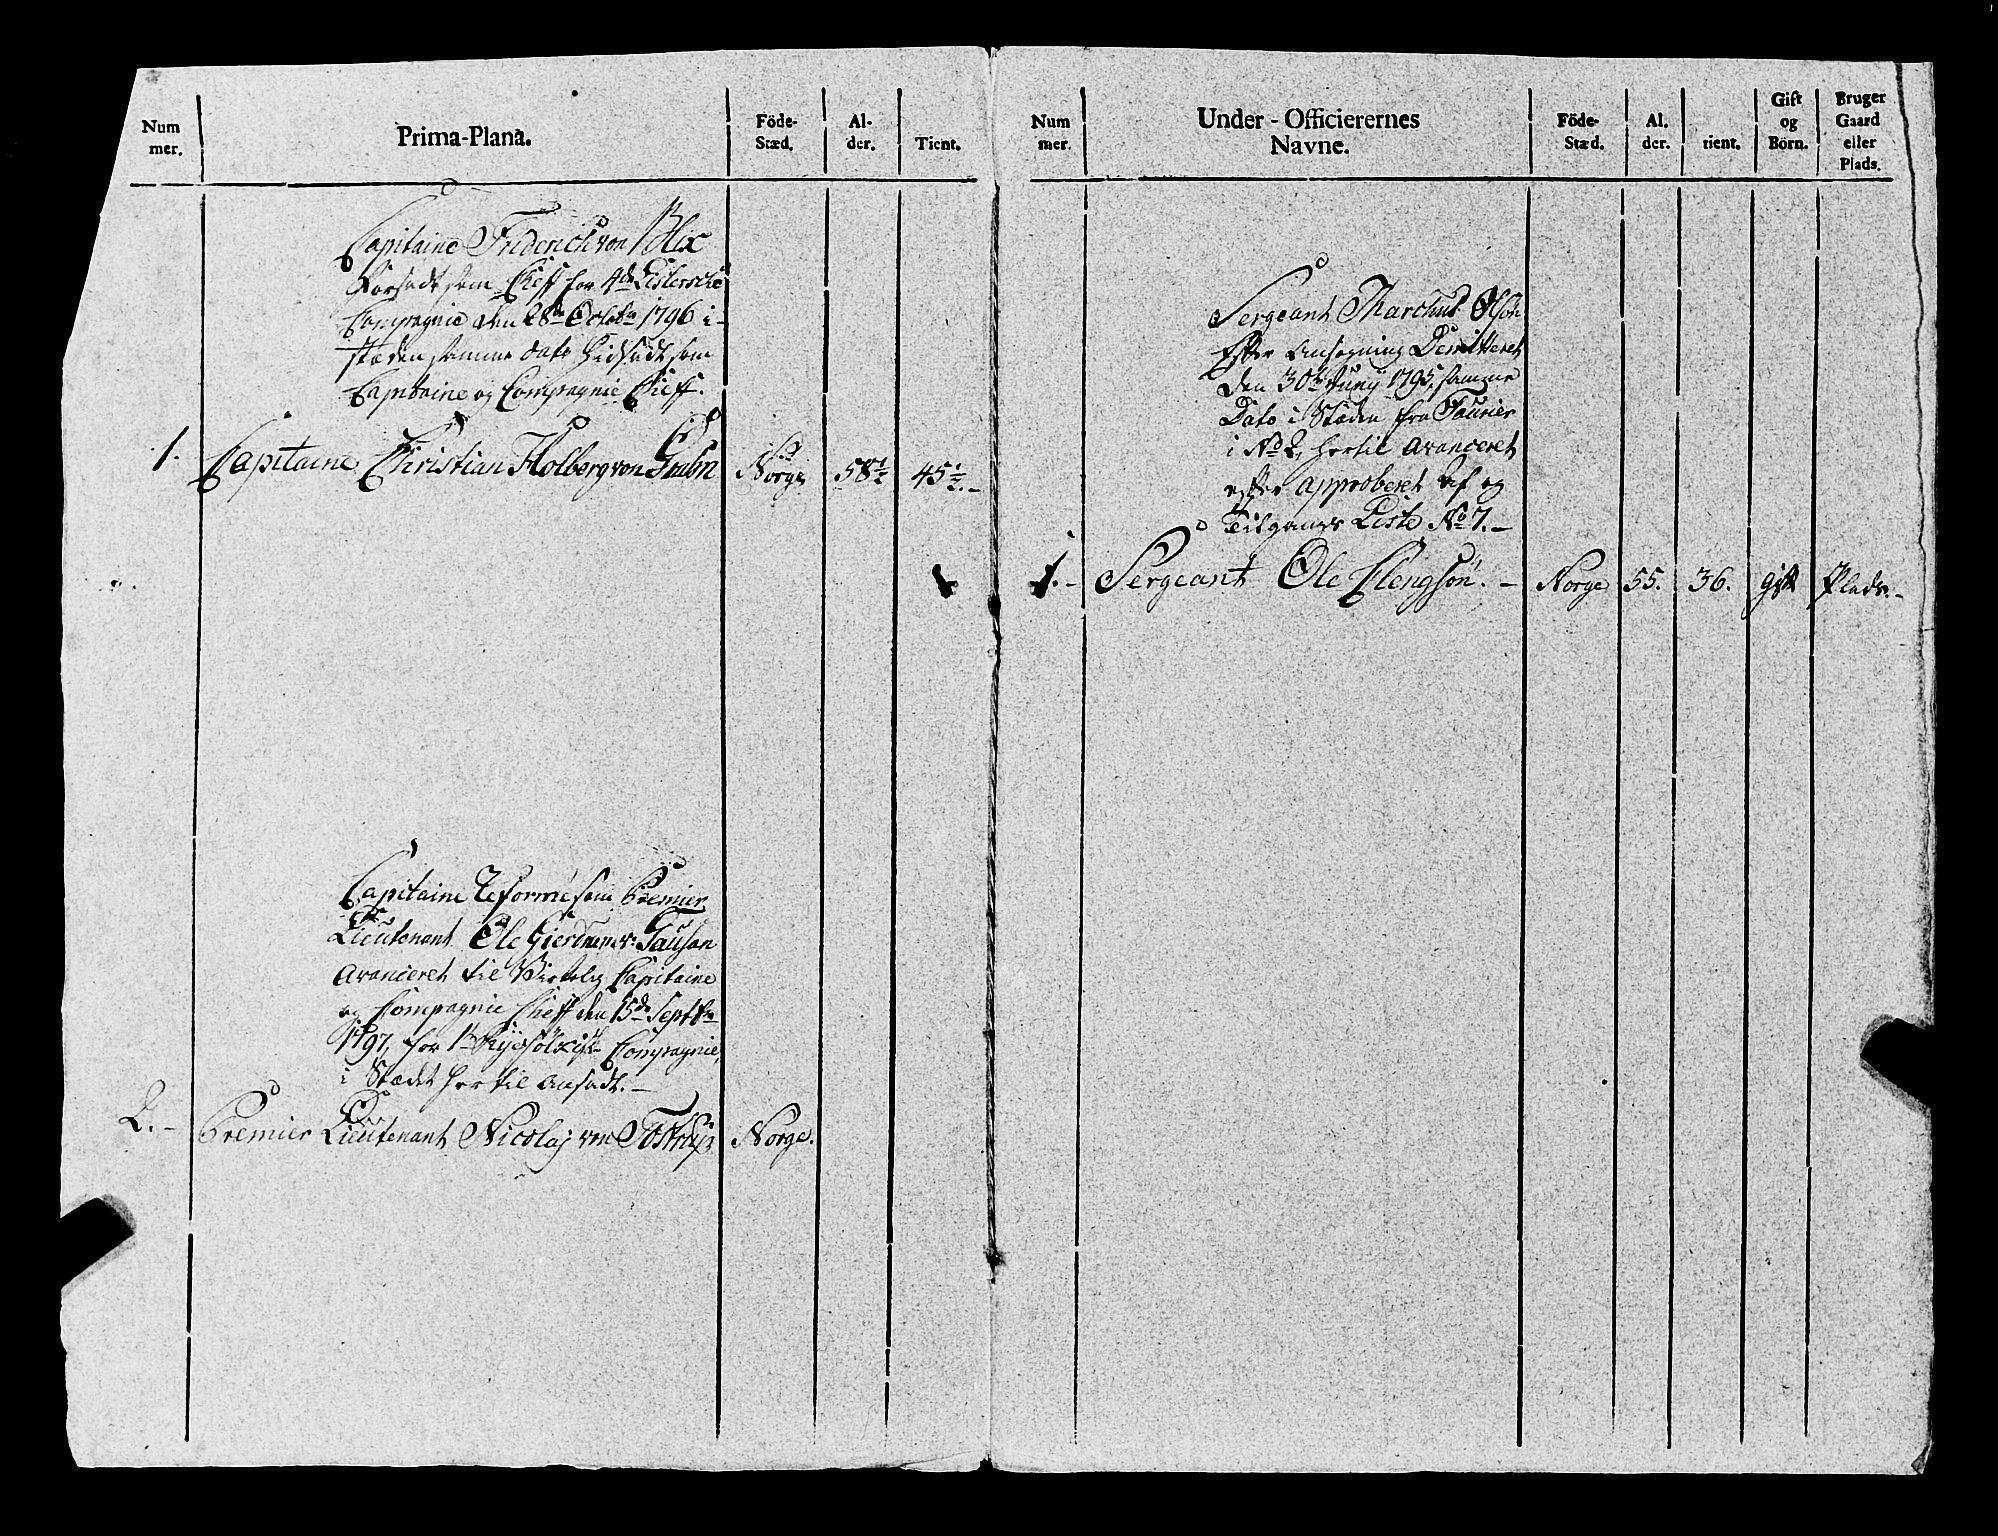 Num
mer.
Prima-Plana.
Föde-
Stæd.
Al-
der.
Tient.
Capitaine Friderich von Blix
Forsadt som Cheff for 4de Listersche
Compagnie den 28de Octobr 1796 i-
stæden samme dato hidsadt som
Capitaine og Compagnie Cheff.
1. Capitaine Christian Holberg von Norge 58½ 45½.-
Capitaine Reformé som Premier
Lieutenant Ole v: Tausan
Avanceret til Virkelig Capitaine
og Compagnie Cheff den 15de Septbr
1797, for 1te Compagnie,
i Stædet her til Ansadt.-
2.- Premier Lieutenant Nicolaj von Tostrup Norge.
Num
mer.
Under-Officierernes
Navne.
Föde-
Stæd.
Al.
der.
tient.
Gift
og
Börn.
Bruger
Gaard
eller
Plads.
Sergeant Marchus Olsön
Efter Ansøgning Demitteret
den 30te Juny 1795, samme
Dato i Stæden fra Fourier
i No 2, hertil avanceret
efter approberet Af og
Tilgangs Liste No 7.-
1.- Sergeant Ole Elengsön.- Norge 55. 36. gift Plads.-